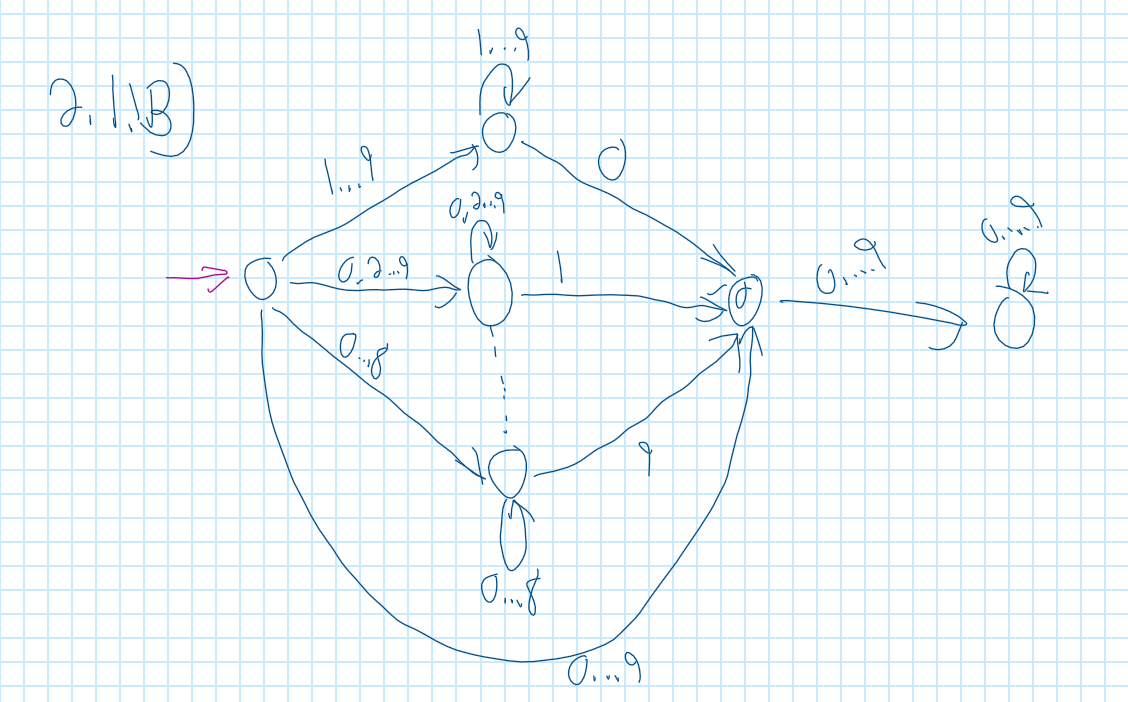 1...9
2.1.B)
1...9
0
0,2..9
0,2..9
1
0...9
0...9
0...8
9
0...8
0...9